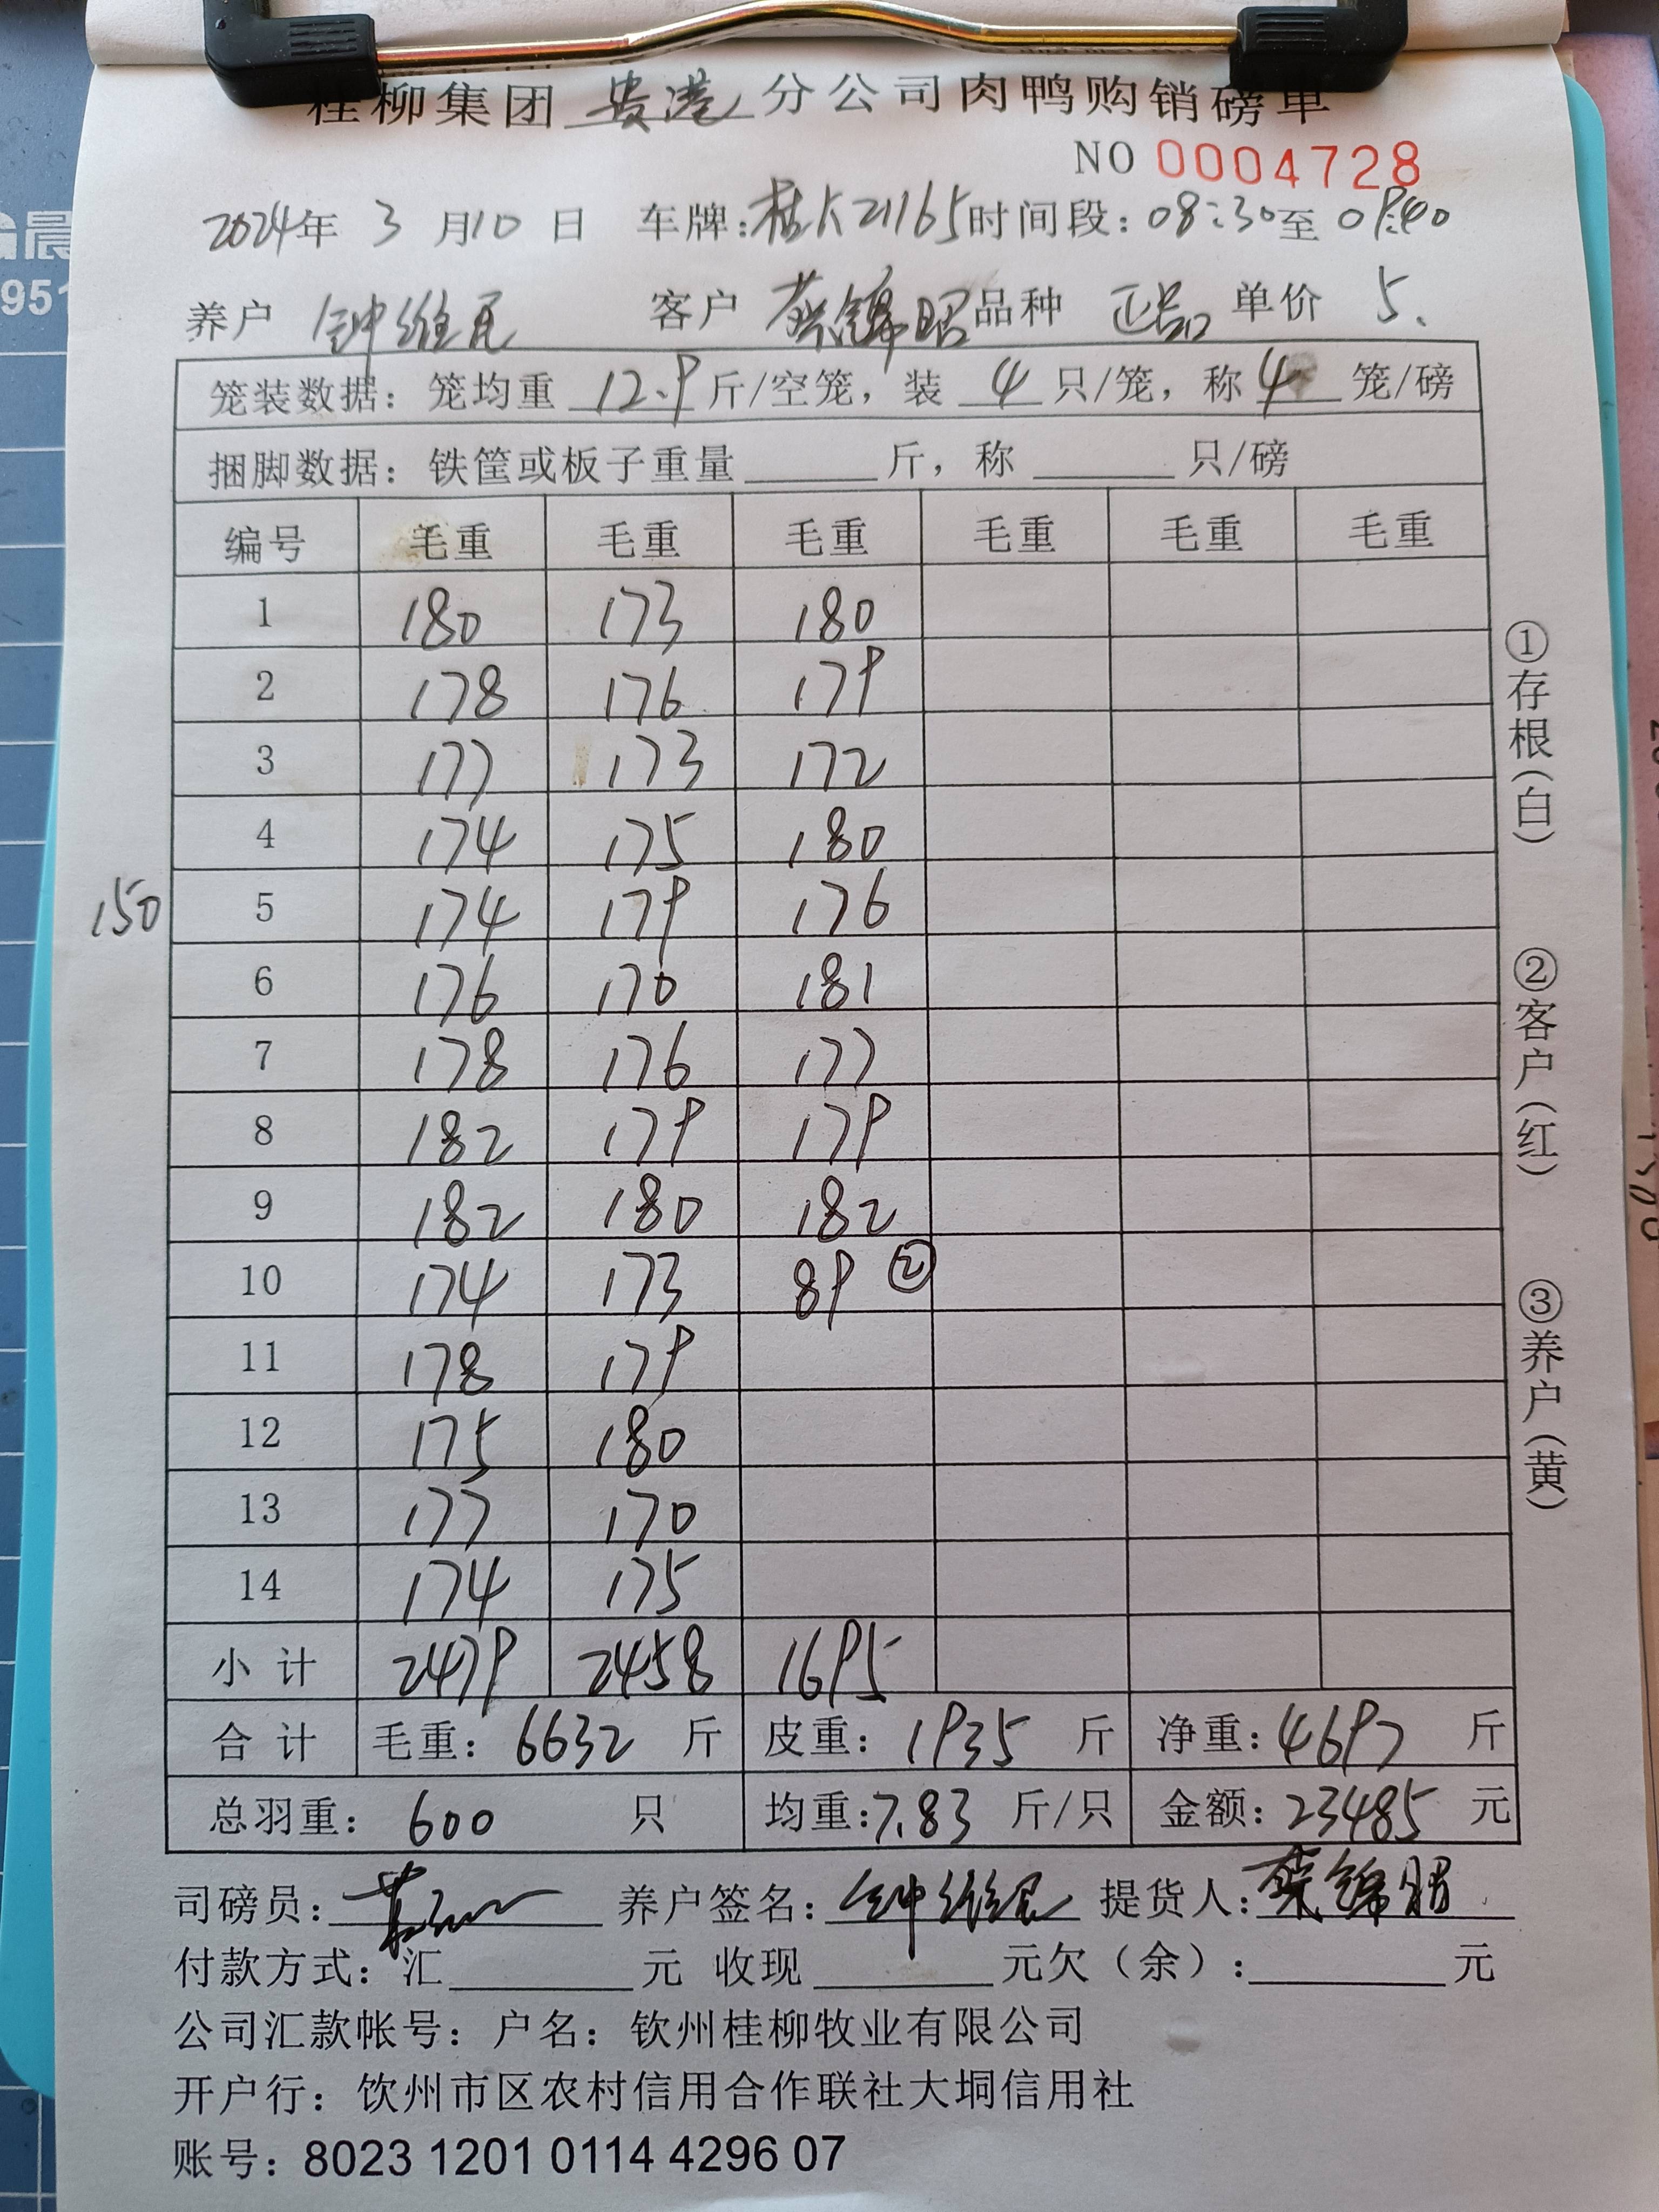 桂柳集团 贵港 分公司肉鸭购销磅单
NO 0004728
2024年 3 月10 日 车牌:桂K21165时间段:08:30至 09:40
养户 钟维 客户 蔡锦昭 品种 正品 单价 5.
笼装数据: 笼均重 12.9 斤/空笼, 装 4 只/笼, 称 4 笼/磅
捆脚数据: 铁筐或板子重量 斤, 称 只/磅
编号 毛重 毛重 毛重 毛重 毛重 毛重
1 180 173 180
2 178 176 179
3 177 173 172
4 174 175 180
150 5 174 179 176
6 176 170 181
7 178 176 177
8 182 179 179
9 182 180 182
10 174 173 89 ②
11 178 179
12 175 180
13 177 170
14 174 175
小 计 2479 2458 1695
合 计 毛重: 6632 斤 皮重: 1935 斤 净重: 4697 斤
总羽重: 600 只 均重: 7.83 斤/只 金额: 23485 元
①存根(白)
②客户(红)
③养户(黄)
司磅员: 养户签名: 钟维 提货人: 蔡锦昭
付款方式: 汇 元 收现 元欠(余): 元
公司汇款帐号: 户名: 钦州桂柳牧业有限公司
开户行: 钦州市区农村信用合作联社大垌信用社
账号: 8023 1201 0114 4296 07
晨
951